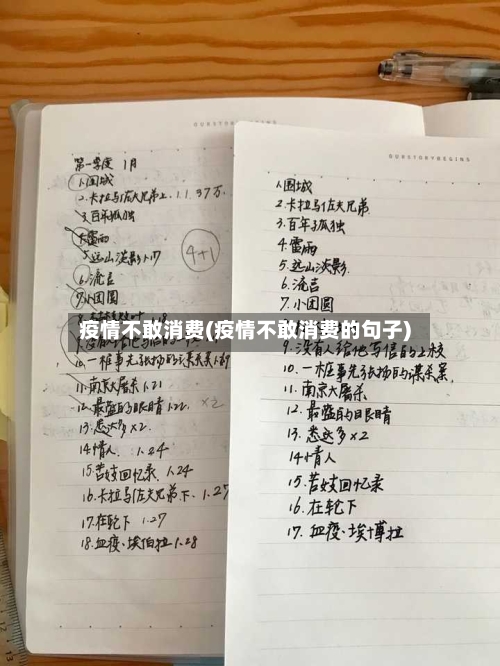 OURSTORYBEGINS
第一季度 1月
1.围城
2.卡拉马佐夫兄弟上. 1.1 37万.
3.百年孤独
4.雷雨
5.远山淡影 1.17
4+1
6.流言
7.小团圆
疫情不敢消费(疫情不敢消费的句子)
10.一桩事先张扬的谋杀案 1.19
11.南京大屠杀 1.21
12.最蓝的眼睛 1.22. ×2
13.悉达多×2.
14.情人. 1.24
15.苦妓回忆录. 1.24
16.卡拉马佐夫兄弟下. 1.27
17.在轮下 1.27
18.血疫·埃伯拉 1.28
OURSTORYBEGINS
1.围城
2.卡拉马佐夫兄弟
3.百年孤独
4.雷雨
5.远山淡影.
6.流言
7.小团圆
9.没有人给他写信的上校
10.一桩事先张扬的谋杀案.
11.南京大屠杀.
12.最蓝的眼睛
13.悉达多×2
14.情人
15.苦妓回忆录
16.在轮下
17.血疫·埃博拉